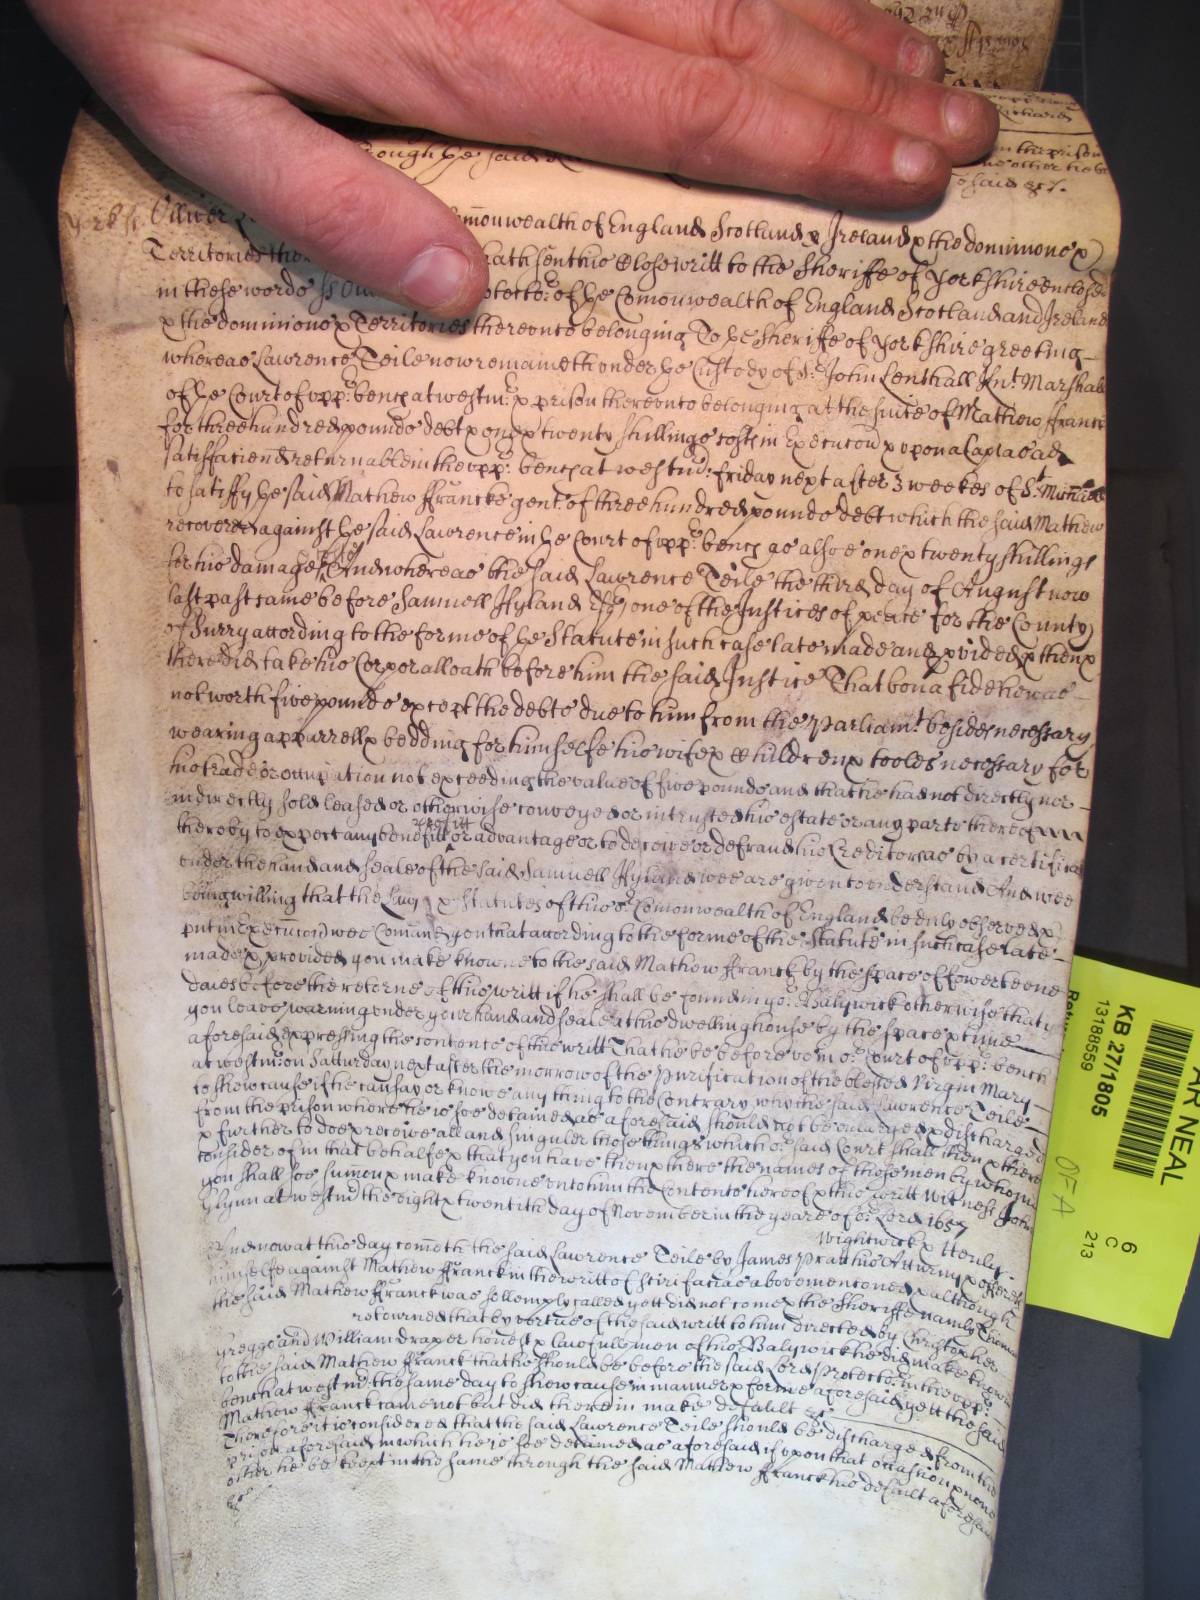 rough ye said
Richard
in the prison
none other he be
said &c.
Yorksr. Olliver monwealth of England Scotland & Ireland & the dominions &
Territories ther hath sent his Close writt to the Sheriffe of Yorkshire enclosed
in these words ss. Oll otector of ye Comonwealth of England Scotland and Ireland
& the dominions & Territories thereonto belonging To ye Sheriffe of Yorkshire greeting
whereas Lawrence Teile now remaineth onder ye Custody of Sr. John Lenthall Knt. Marshall
of ye Court of vpp: bench at westmr. & prison thereonto belonging at the suite of Mathew ffranck
for three hundred pounds debt & one & twenty shillings costs in Execucon vpon a Capias ad
satisfaciend returnable in the vpp: bench at westmr: friday next after 3 weekes of St. Michael
to satisfy ye said Mathew ffrancke gent. of three hundred pounds debt which the said Mathew
recovered against ye said Lawrence in ye Court of vpp: bench as also one & twenty shillings
for his damages &c And whereas the said Lawrence Teile the third day of August now
last past came before Samuell Hyland Esqr one of the Justices of peace for the County
of Surry according to the forme of ye Statute in such case late made and pvided & then &
there did take his Corporall oath before him the said Justice That bona fide he was
not worth five pounds except the debts due to him from the Parliamt. besides necessary
wearing apparrell & bedding for himselfe his wife & Children & tooles necessary for
his trade or occupation not exceeding the value of five pounds and that he had not directly nor
indirectly sold leased or otherwise conveyed or intrusted his estate or any parte thereof
thereby to expect any benefitt profitt or advantage or to deceive or defraud his Creditors as by a certificate
onder the hand and seale of the said Samuell Hyland wee are given to onderstand And wee
being willing that the Laws & Statutes of this or. Comonwealth of England be duly observed &
put in Execucion wee Comand you that according to the forme of the Statute in such case late
made & provided you make knowne to the said Mathew ffranck by the space of fowerteene
daies before the returne of this writt if he shall be found in yor. Balywick otherwise that
you leave warning onder your hand and seale at his dwelling house by the space & time
aforesaid expressing the contents of this writt That he be before vs in or. Court of vpp: bench
at westmr: on Satturday next after the morrow of the Purification of the blessed Virgin Mary
to show cause if he can say or knowe any thing to the Contrary why the said Lawrence Teile
from the prison where he is soe detained as aforesaid should not be enlarged & discharged
& further to doe & receive all and singuler those things which or. said Court shall then & there
consider of in that behalfe & that you have then & there the names of those men by whom
you shall soe sumon & make knowne onto him the Contents hereof & this writt Witness John
Glynn at westmr the eight & twentith day of November in the yeare of or. Lord 1657
Wightwick &
And now at this day cometh the said Lawrence Teile by James Pra his Atturny & offereth
himselfe against Mathew ffranck in the writt of Scire facias above mencioned & although
the said Mathew ffranck was sollemply called yett did not come & the Sheriffe namely
retorned that by vertue of the said writt to him directed by Christopher
Gregge and William Draper honest & lawfull men of his Balywick he did make knowne
to the said Mathew ffranck that he should be before the said Lord Protector in the vpp:
bench at westmr: the same day to show cause in manner & forme aforesaid yett the said
Mathew ffranck came not but did therein make default &c.
Therefore it is considered that the said Lawrence Teile should be discharged from the
prison aforesaid in which he is soe detained as aforesaid if vpon that occasion & none
other he be kept in the same through the said Mathew ffranck his default aforesaid
&c.
AR NEAL
KB 27/1805
13188559
6
C
213
OFA